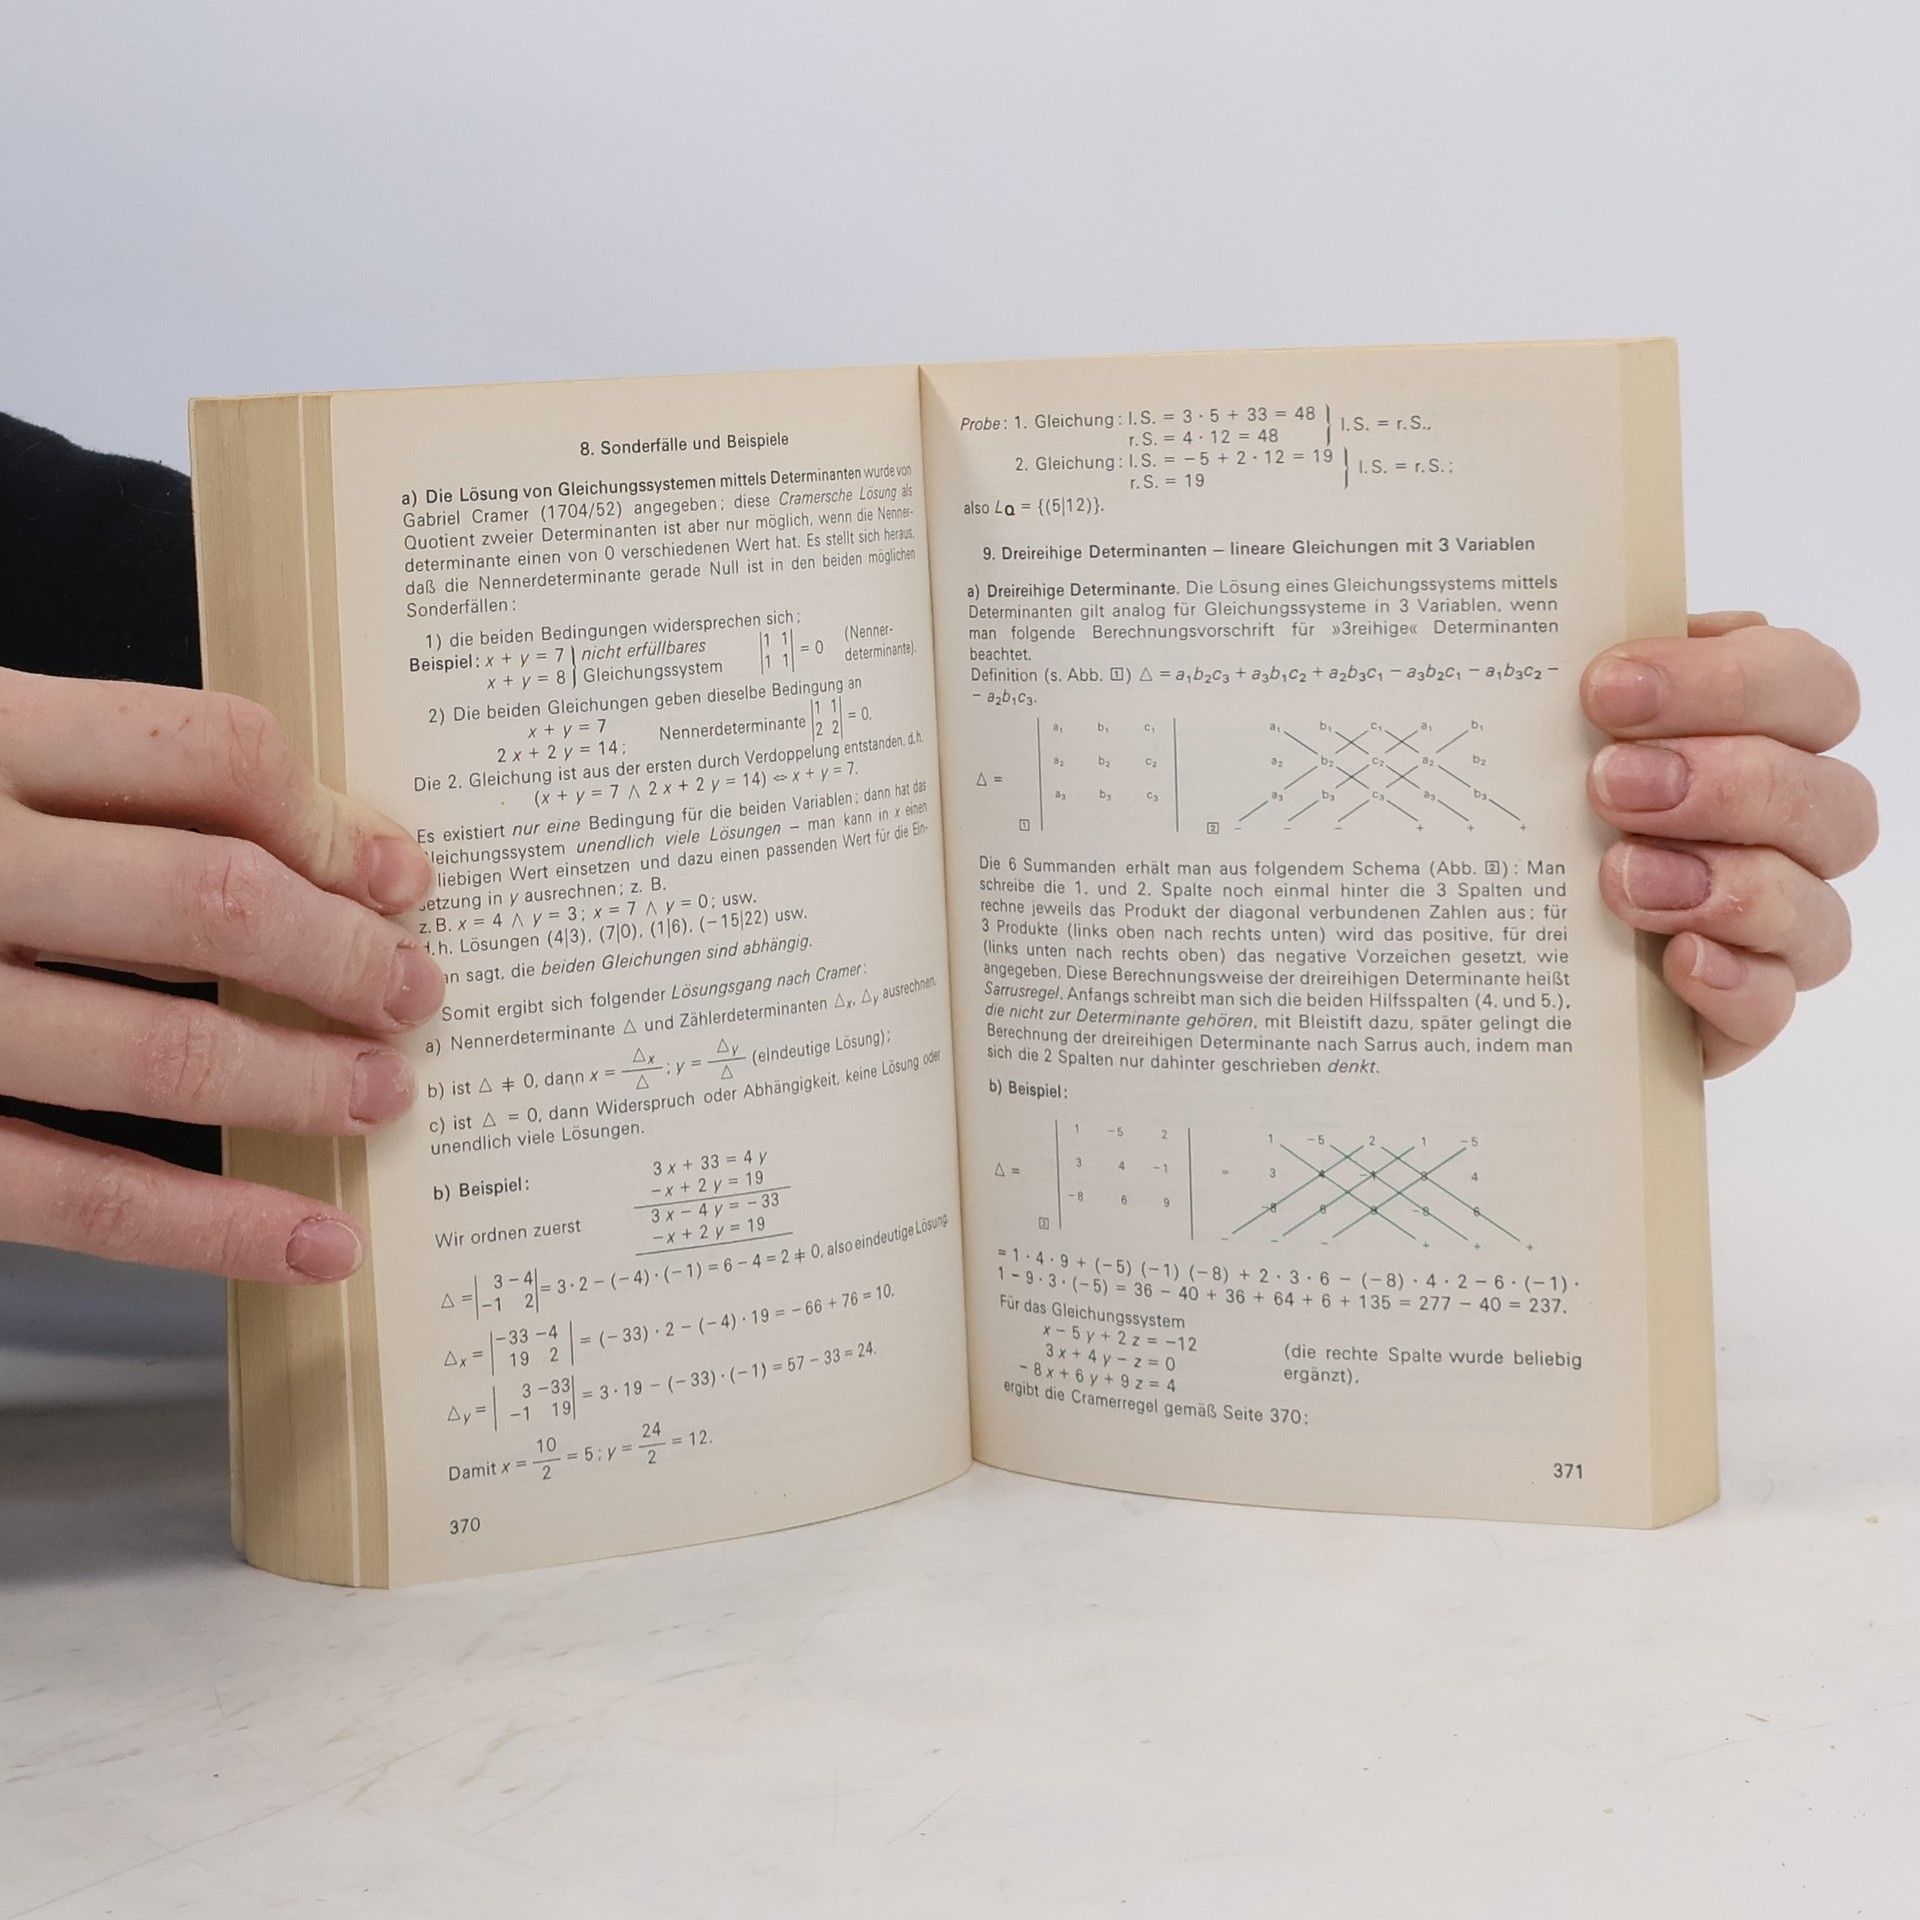 8. Sonderfälle und Beispiele
a) Die Lösung von Gleichungssystemen mittels Determinanten wurde von
Gabriel Cramer (1704/52) angegeben; diese Cramersche Lösung als
Quotient zweier Determinanten ist aber nur möglich, wenn die Nenner-
determinante einen von 0 verschiedenen Wert hat. Es stellt sich heraus,
daß die Nennerdeterminante gerade Null ist in den beiden möglichen
Sonderfällen:
1) die beiden Bedingungen widersprechen sich;
Beispiel: x + y = 7 } nicht erfüllbares |1 1| = 0 (Nenner-
x + y = 8 } Gleichungssystem |1 1| determinante).
2) Die beiden Gleichungen geben dieselbe Bedingung an
x + y = 7 Nennerdeterminante |1 1| = 0.
2 x + 2 y = 14; |2 2|
Die 2. Gleichung ist aus der ersten durch Verdoppelung entstanden, d.h.
(x + y = 7 ∧ 2 x + 2 y = 14) ⇔ x + y = 7.
Es existiert nur eine Bedingung für die beiden Variablen; dann hat das
leichungssystem unendlich viele Lösungen – man kann in x einen
liebigen Wert einsetzen und dazu einen passenden Wert für die Ein-
etzung in y ausrechnen; z. B.
z. B. x = 4 ∧ y = 3; x = 7 ∧ y = 0; usw.
.h. Lösungen (4|3), (7|0), (1|6), (−15|22) usw.
an sagt, die beiden Gleichungen sind abhängig.
Somit ergibt sich folgender Lösungsgang nach Cramer:
a) Nennerdeterminante △ und Zählerdeterminanten △x, △y ausrechnen.
b) ist △ ≠ 0, dann x = △x/△; y = △y/△ (eindeutige Lösung);
c) ist △ = 0, dann Widerspruch oder Abhängigkeit, keine Lösung oder
unendlich viele Lösungen.
b) Beispiel: 3 x + 33 = 4 y
−x + 2 y = 19
Wir ordnen zuerst 3 x − 4 y = −33
−x + 2 y = 19
△ = | 3 −4| = 3 · 2 − (−4) · (−1) = 6 − 4 = 2 ≠ 0, also eindeutige Lösung.
|−1 2|
△x = |−33 −4| = (−33) · 2 − (−4) · 19 = −66 + 76 = 10.
| 19 2|
△y = | 3 −33| = 3 · 19 − (−33) · (−1) = 57 − 33 = 24.
|−1 19|
Damit x = 10/2 = 5; y = 24/2 = 12.
370
Probe: 1. Gleichung: l.S. = 3 · 5 + 33 = 48 } l.S. = r.S.,
r.S. = 4 · 12 = 48
2. Gleichung: l.S. = −5 + 2 · 12 = 19 } l.S. = r.S.;
r.S. = 19
also LQ = {(5|12)}.
9. Dreireihige Determinanten – lineare Gleichungen mit 3 Variablen
a) Dreireihige Determinante. Die Lösung eines Gleichungssystems mittels
Determinanten gilt analog für Gleichungssysteme in 3 Variablen, wenn
man folgende Berechnungsvorschrift für »3reihige« Determinanten
beachtet.
Definition (s. Abb. 1) △ = a₁b₂c₃ + a₃b₁c₂ + a₂b₃c₁ − a₃b₂c₁ − a₁b₃c₂ −
− a₂b₁c₃.
a₁ b₁ c₁ a₁ b₁ c₁ a₁ b₁
△ = a₂ b₂ c₂ a₂ b₂ c₂ a₂ b₂
a₃ b₃ c₃ a₃ b₃ c₃ a₃ b₃
1 2 − − − + + +
Die 6 Summanden erhält man aus folgendem Schema (Abb. 2): Man
schreibe die 1. und 2. Spalte noch einmal hinter die 3 Spalten und
rechne jeweils das Produkt der diagonal verbundenen Zahlen aus; für
3 Produkte (links oben nach rechts unten) wird das positive, für drei
(links unten nach rechts oben) das negative Vorzeichen gesetzt, wie
angegeben. Diese Berechnungsweise der dreireihigen Determinante heißt
Sarrusregel. Anfangs schreibt man sich die beiden Hilfsspalten (4. und 5.),
die nicht zur Determinante gehören, mit Bleistift dazu, später gelingt die
Berechnung der dreireihigen Determinante nach Sarrus auch, indem man
sich die 2 Spalten nur dahinter geschrieben denkt.
b) Beispiel:
1 −5 2 1 −5 2 1 −5
△ = 3 4 −1 = 3 4 −1 3 4
−8 6 9 −8 6 9 −8 6
3 − − − + + +
= 1 · 4 · 9 + (−5) (−1) (−8) + 2 · 3 · 6 − (−8) · 4 · 2 − 6 · (−1) ·
1 − 9 · 3 · (−5) = 36 − 40 + 36 + 64 + 6 + 135 = 277 − 40 = 237.
Für das Gleichungssystem
x − 5 y + 2 z = −12
3 x + 4 y − z = 0 (die rechte Spalte wurde beliebig
− 8 x + 6 y + 9 z = 4 ergänzt),
ergibt die Cramerregel gemäß Seite 370:
371